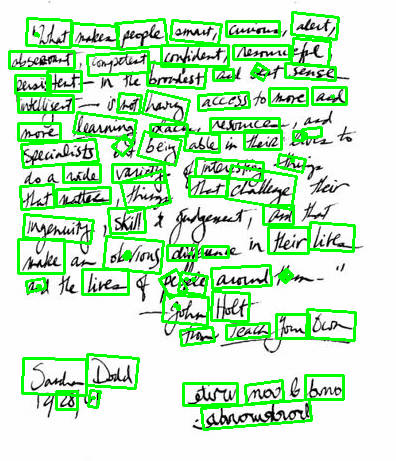 "What makes people smart, curious, alert,
observant, competent, confident, resourceful
persistent - in the broadest and best sense -
intelligent - is not having access to more and
more learning places, resources, and
specialists but being able in their lives to
do a wide variety of interesting things
that matter, things that challenge their
ingenuity, skill & judgement, and that
make an obvious difference in their lives
and the lives of people around them - "
- John Holt
from Teach Your Own
Sandra Dodd